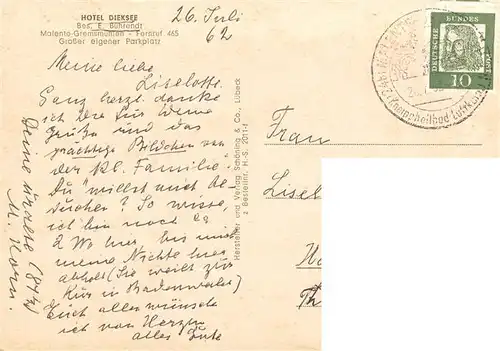 HOTEL DIEKSEE
Bes. E. Behrendt
Malente-Gremsmühlen - Fernruf 465
Großer eigener Parkplatz
26. Juli
62
Meine liebe
Liselotte.
Ganz herzl. danke
ich Dir für Deine
Grüße und das
prächtige Bildchen von
der kl. Familie.
Du willst mich be-
suchen? So wisse,
ich bin noch ca
2 Wo hier, bis mich
meine Nichte hier
abholt (Sie weilt zur
Kur in Badenweiler)
Euch allen wünsche
ich von Herzen
alles Gute
Deine uralte (84j.)
M. Horn.
Hersteller und Verlag Schöning & Co., Lübeck
Bestellnr. H.-S. 2011-1
DEUTSCHE BUNDES
10
Kneippheilbad Luftk
Frau
Lisel
Th